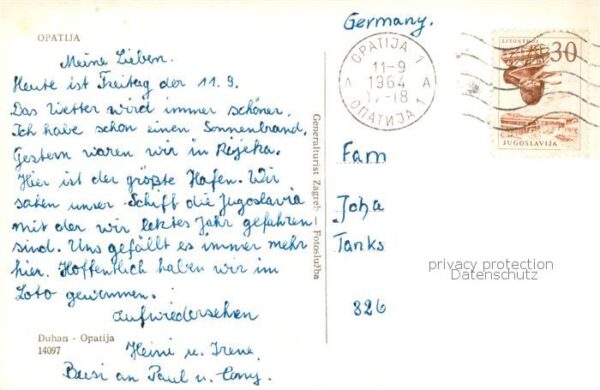 OPATIJA
Meine Lieben.
Heute ist Freitag der 11.9.
Das Wetter wird immer schöner.
Ich habe schon einen Sonnenbrand.
Gestern waren wir in Rijeka.
Hier ist der größte Hafen. Wir
sahen unser Schiff die Jugoslavia
mit der wir letztes Jahr gefahren
sind. Uns gefällt es immer mehr
hier. Hoffentlich haben wir im
Loto gewonnen.
Aufwiedersehen
Heini u. Irene.
Busi an Paul u. Conny.
Duhan - Opatija
14097
Generalturist Zagreb — Fotoslužba
Germany.
OPATIJA 1
11-9
1964
17-18
A A
ОПАТИЈА 1
30
JUGOSLAVIJA
Fam
Joha
Tanks
326
privacy protection
Datenschutz